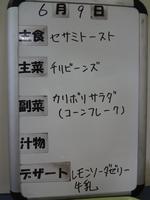 6月9日
主食 セサミトースト
主菜 チリビーンズ
副菜 カリポリサラダ
(コーンフレーク)
汁物
デザート レモンソーダゼリー
牛乳